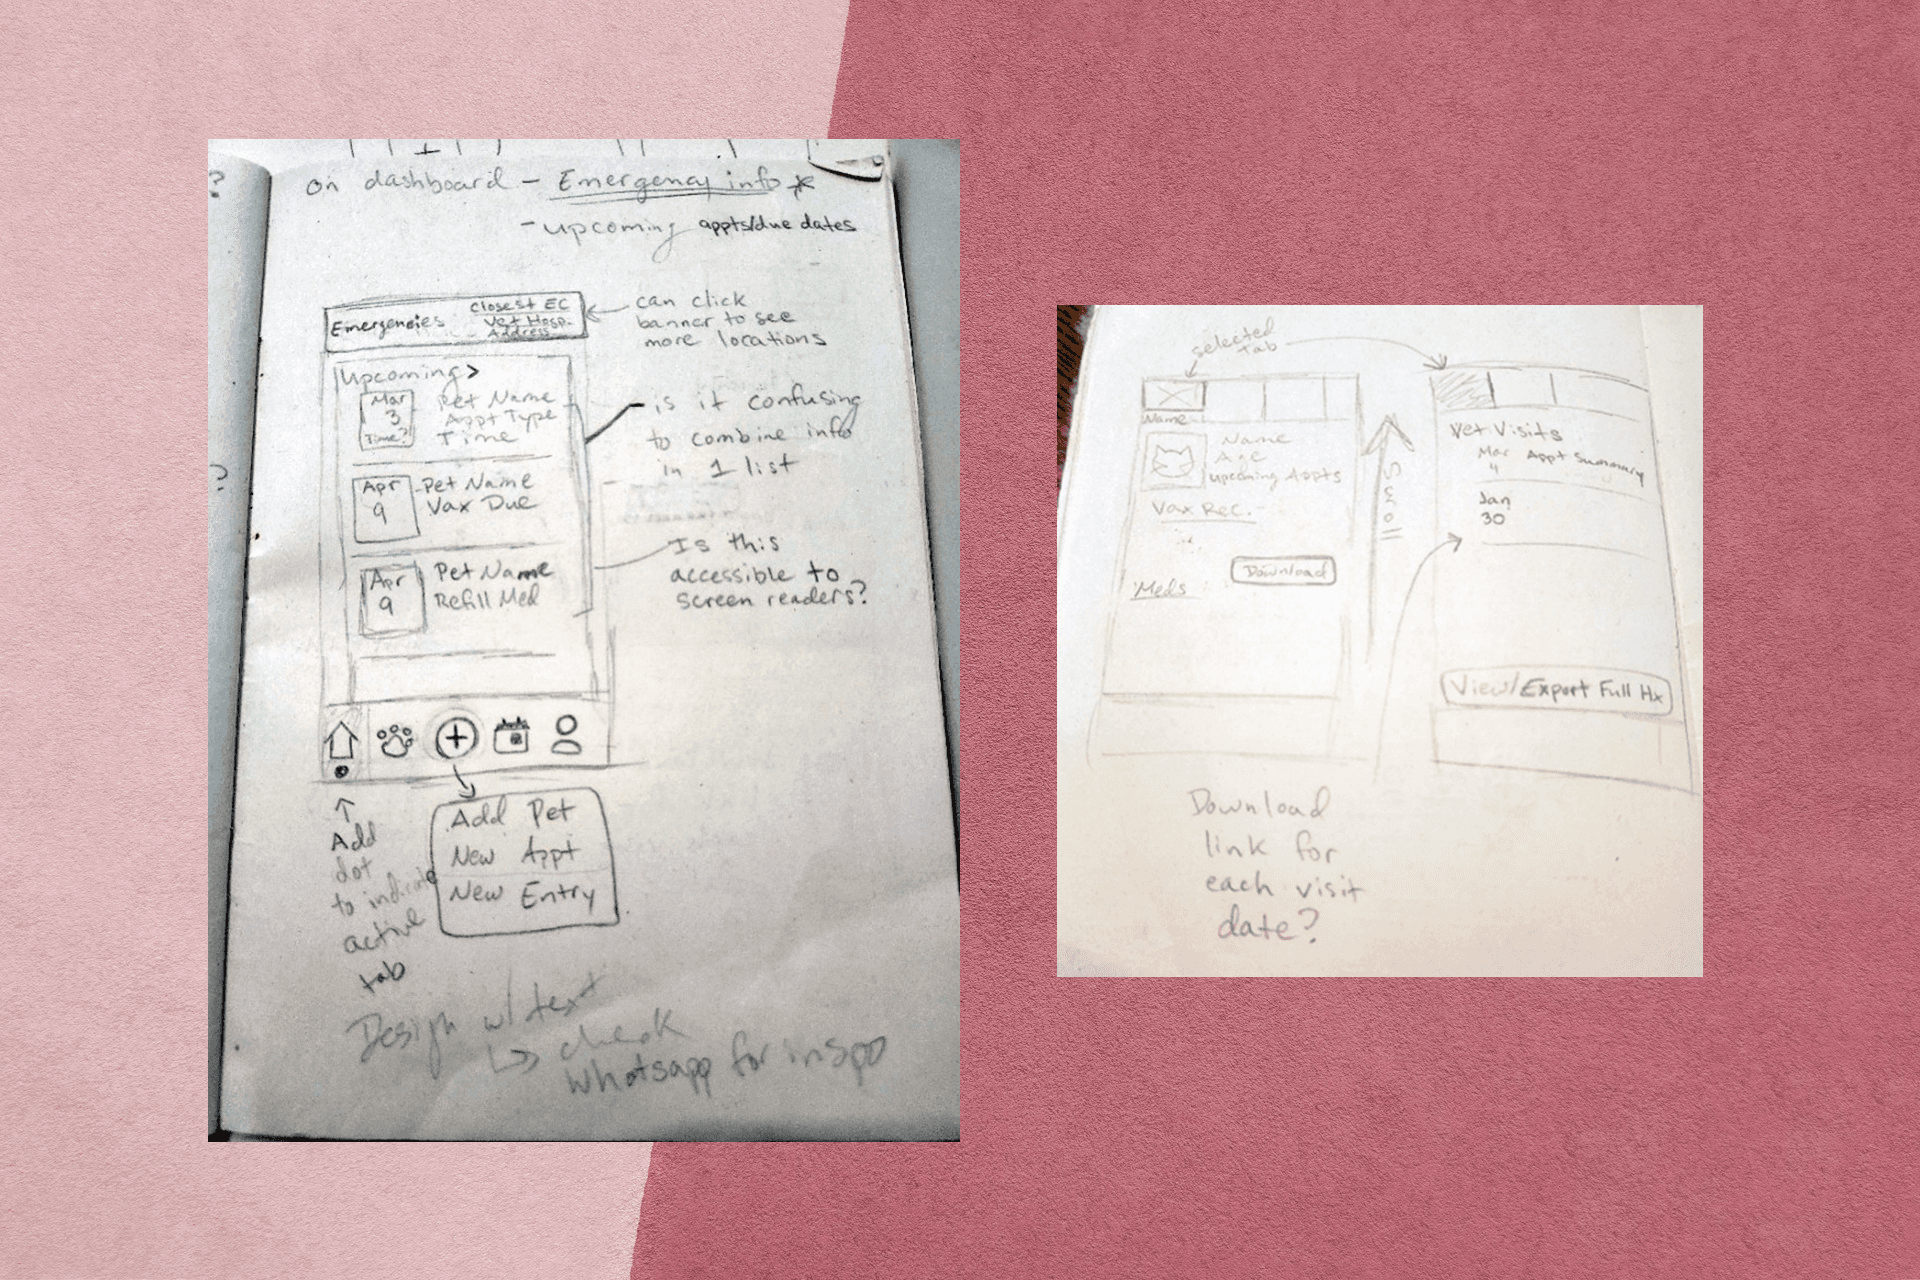 On dashboard - Emergency info *
- upcoming appts/due dates
Emergencies
Closest EC
Vet Hosp.
Address
can click
banner to see
more locations
Upcoming >
Mar
3
Time?
Pet Name
Appt Type
Time
is it confusing
to combine info
in 1 list
Apr
9
Pet Name
Vax Due
Is this
accessible to
screen readers?
Apr
9
Pet Name
Refill Med
Add Pet
New Appt
New Entry
Add
dot
to indicate
active
tab
Design w/text
check
Whatsapp for inspo
?
?
selected
tab
Name
Name
Age
upcoming Appts
Vax Rec.
Download
Meds
Scroll
Vet Visits
Mar
4
Appt Summary
Jan
30
View/Export Full Hx
Download
link for
each visit
date?